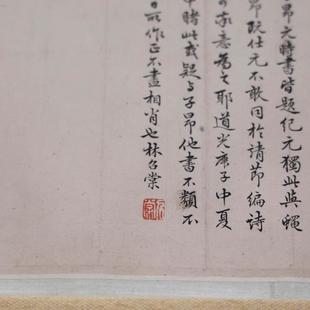 昂元時書皆題紀元獨此與蠅
昂既仕元不敢同於靖節編詩
意為之耶道光庚子中夏
睹此或疑与子昂他書不類不
日所作正不盡相肖也林召棠